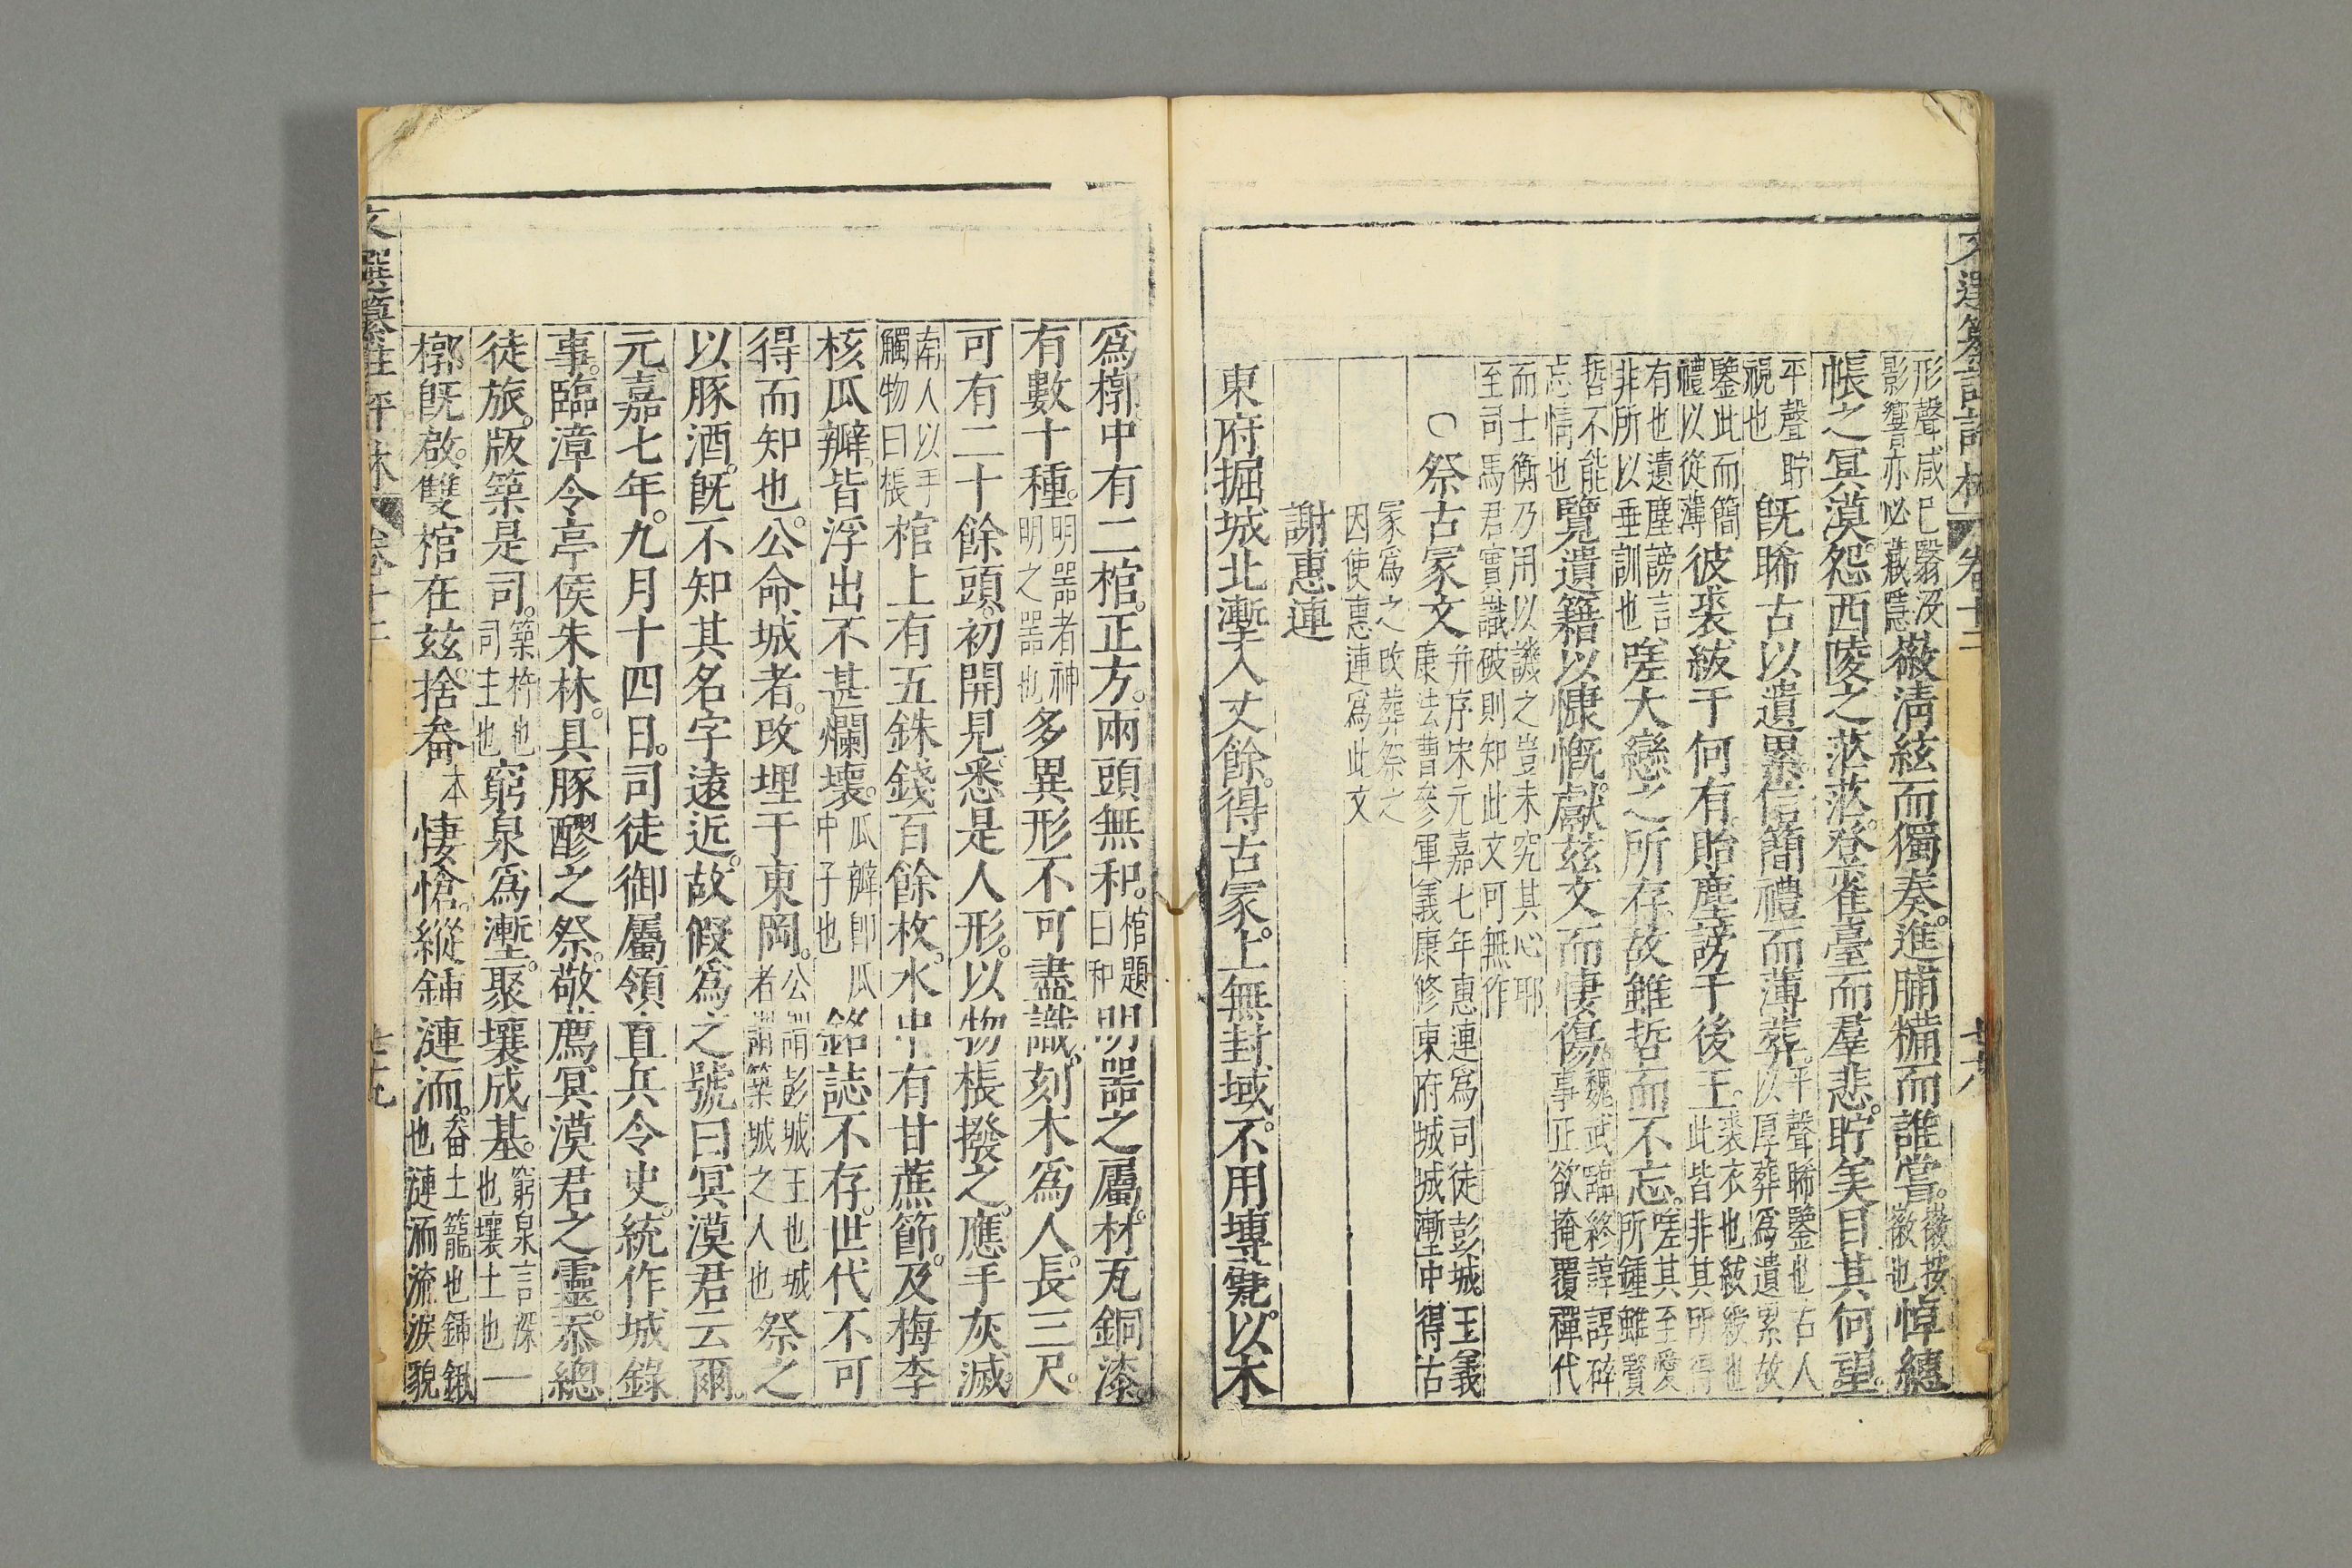 文選纂註評林 卷十二 廿八
形聲咸已翳沒影響亦必藏隱徽淸絃而獨奏進脯糒而誰嘗徽按徽也悼繐
帳之冥漠怨西陵之茫茫登雀臺而羣悲貯美目其何望
平聲貯視也旣睎古以遺累信簡禮而薄葬平聲睎鑒也古人以厚葬爲遺累故
鑒此而簡禮以從薄彼裘紱于何有貽塵謗于後王裘衣也紱綬也此皆非其所得
有也遺塵謗言非所以垂訓也嗟大戀之所存故雖哲而不忘嗟其至愛所鍾雖賢
哲不能忘情也覽遺籍以慷慨獻茲文而悽傷魏武臨終諄諄碎事正欲掩覆禪代
而士衡乃用以譏之豈未究其心耶至司馬君實識破則知此文可無作
○祭古冢文幷序宋元嘉七年惠連爲司徒彭城王義康法曹參軍義康修東府城城塹中得古
冢爲之改葬祭之因使惠連爲此文
謝惠連
東府掘城北塹入丈餘得古冢上無封域不用塼甓以木
爲槨中有二棺正方兩頭無和棺題曰和明器之屬材瓦銅漆
有數十種明器者神明之器也多異形不可盡識刻木爲人長三尺
可有二十餘頭初開見悉是人形以物棖撥之應手灰滅
南人以手觸物曰棖棺上有五銖錢百餘枚水中有甘蔗節及梅李
核瓜瓣皆浮出不甚爛壞瓜瓣卽瓜中子也銘誌不存世代不可
得而知也公命城者改埋于東岡公謂彭城王也城者謂築城之人也祭之
以豚酒旣不知其名字遠近故假爲之號曰冥漠君云爾
元嘉七年九月十四日司徒御屬領直兵令史統作城錄
事臨漳令亭侯朱林具豚醪之祭敬薦冥漠君之靈忝總
徒旅版築是司築杵也司主也窮泉爲塹聚壤成基窮泉言深也壤土也一
槨旣啟雙棺在茲捨畚本悽愴縱鍤漣洏畚土籠也鍤鍬也漣洏流淚貌
文選纂註評林 卷十二 廿九